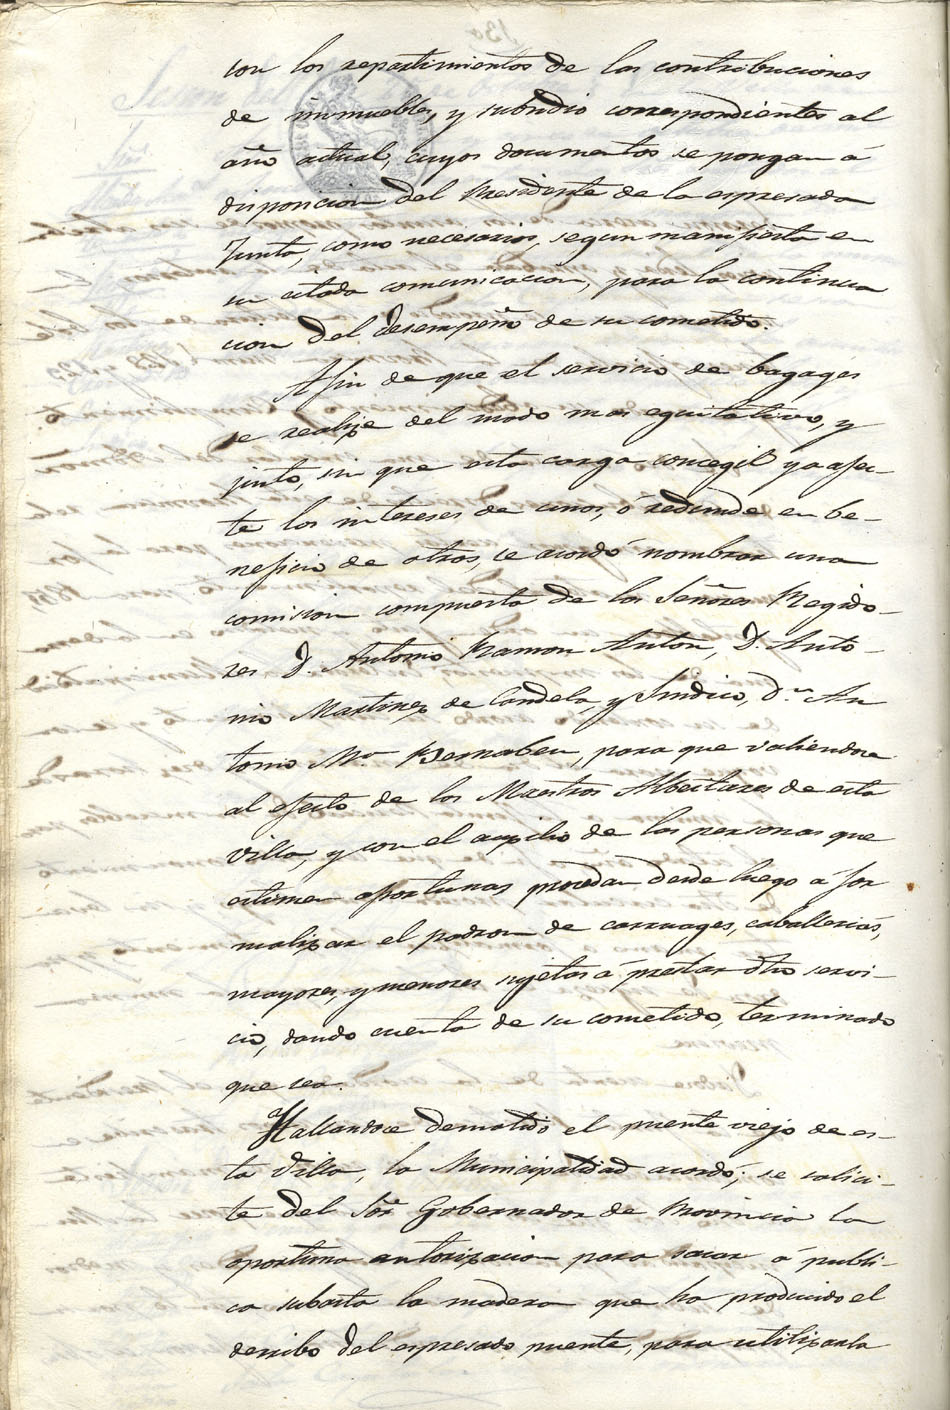 con los repartimientos de las contribuciones
de inmuebles, y subsidio correspondientes al
año actual, cuyos documentos se pongan á
disposicion del Presidente de la espresada
Junta, como necesarios, segun manifiesta en
su citada comunicacion, para la continua
cion del desempeño de su cometido.
Afin de que el servicio de bagages
se realize del modo mas equitativo, y
justo, sin que esta carga concegil ya afec-
te los intereses de unos, ó redunde en be-
neficio de otros, se acordó nombrar una
comision compuesta de los Señores Regido-
res D. Antonio Ramon Anton, D. Anto-
nio Martinez de Candela, y Sindico, Dn. An
tonio Ma. Bernabeu, para que valiendose
al efecto de los Maestros Albeitares de esta
villa, y con el auxilio de las personas que
estimen oportunas procedan desde luego á for
malizar el padron de carruages, caballerias,
mayores, y menores sujetas á prestar dho servi-
cio, dando cuenta de su cometido, terminado
que sea.
Hallandose demolido el puente viejo de es-
ta Villa, la Municipalidad acordó; se solici-
te del Sor. Gobernador de Provincia la
oportuna autorizacion para sacar á publi-
ca subasta la madera que ha producido el
derribo del espresado puente, para utilizarla